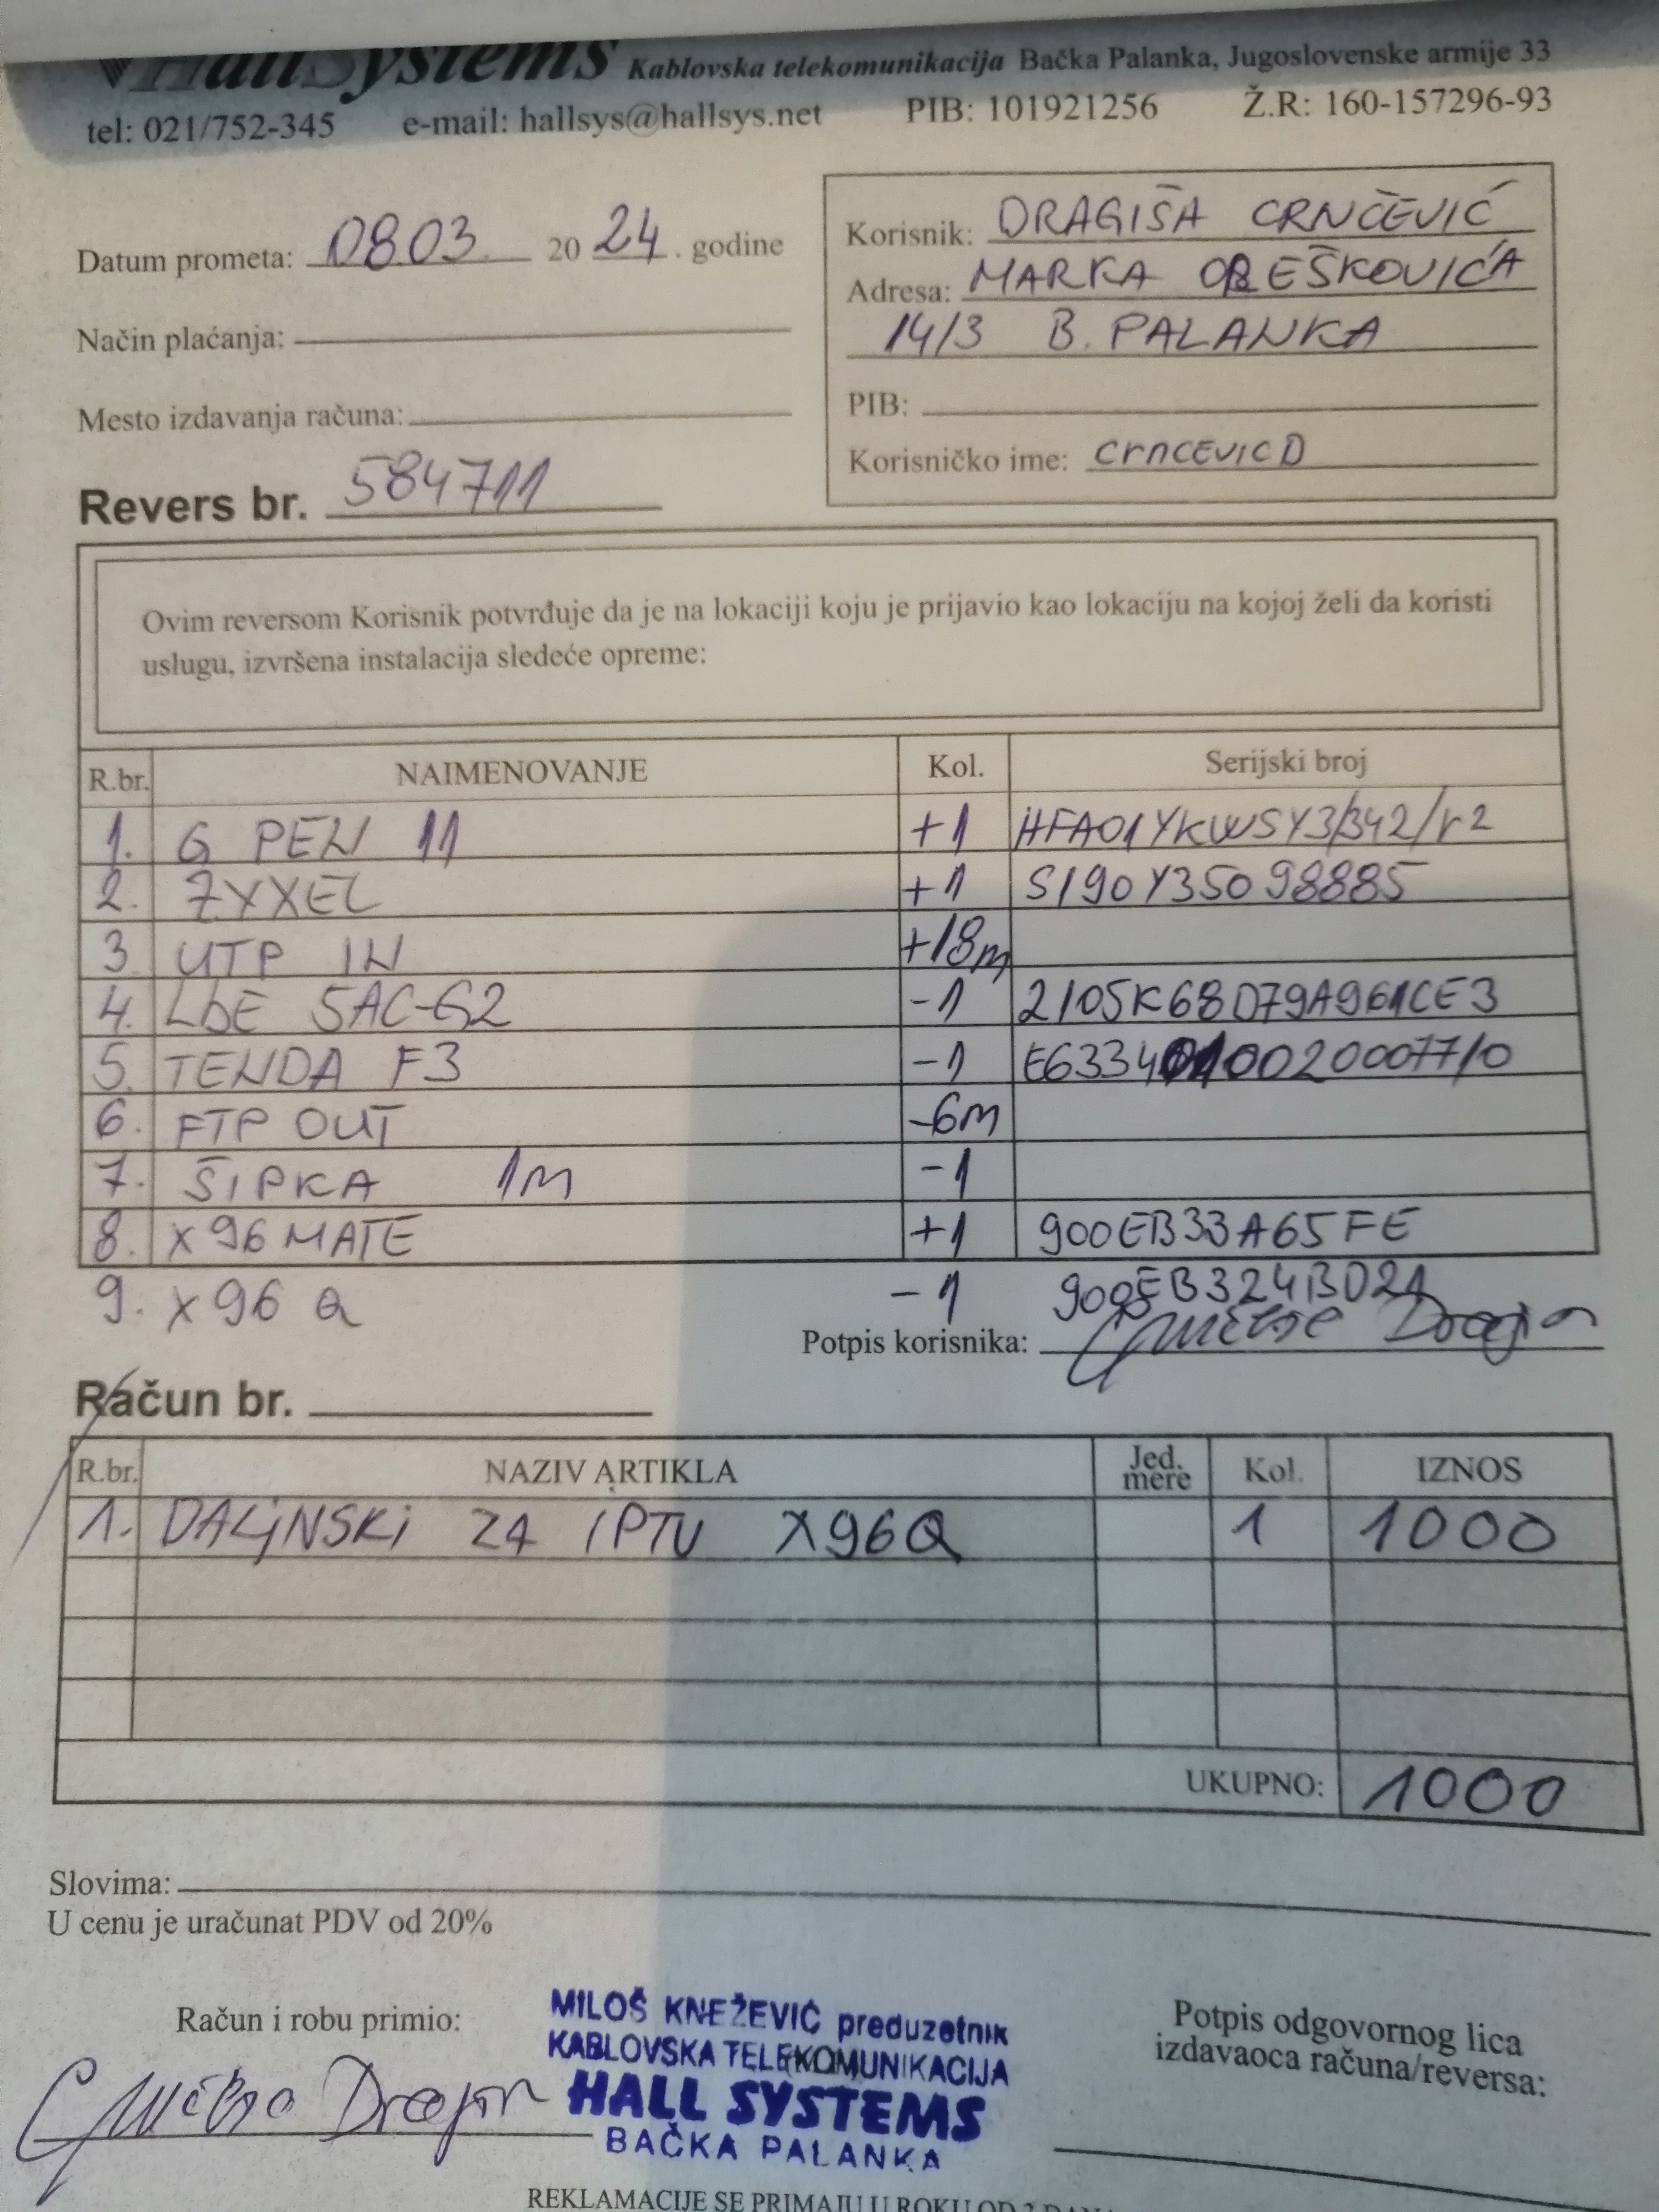 HallSystems Kablovska telekomunikacija Bačka Palanka, Jugoslovenske armije 33
tel: 021/752-345 e-mail: hallsys@hallsys.net PIB: 101921256 Ž.R: 160-157296-93
Datum prometa: 08.03. 20 24 . godine
Način plaćanja:
Mesto izdavanja računa:
Revers br. 584711
Korisnik: DRAGIŠA CRNČEVIĆ
Adresa: MARKA OREŠKOVIĆA
14/3 B. PALANKA
PIB:
Korisničko ime: crncevicD
Ovim reversom Korisnik potvrđuje da je na lokaciji koju je prijavio kao lokaciju na kojoj želi da koristi
uslugu, izvršena instalacija sledeće opreme:
R.br. NAIMENOVANJE Kol. Serijski broj
1. G PEN 11 +1
2. ZYXXEL +1 S190Y35098885
3 UTP IN +18m
4. LDE 5AC-G2 -1 2105K68D79A961CE3
5. TENDA F3 -1
6. FTP OUT -6m
7. ŠIPKA 1m -1
8. X96 MATE +1 900EB33A65FE
9. X96 Q -1 900EB324BD2A
Potpis korisnika:
Račun br.
R.br. NAZIV ARTIKLA Jed. mere Kol. IZNOS
1. DALJNSKI ZA IPTV X96Q 1 1000
UKUPNO: 1000
Slovima:
U cenu je uračunat PDV od 20%
Račun i robu primio:
MILOŠ KNEŽEVIĆ preduzetnik
KABLOVSKA TELEKOMUNIKACIJA
HALL SYSTEMS
BAČKA PALANKA
Potpis odgovornog lica
izdavaoca računa/reversa:
REKLAMACIJE SE PRIMAJU U ROKU OD 3 DANA